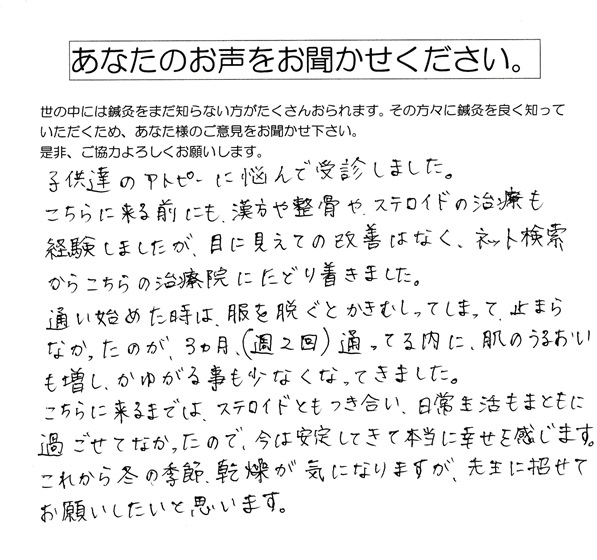 あなたのお声をお聞かせください。
世の中には鍼灸をまだ知らない方がたくさんおられます。その方々に鍼灸を良く知って
いただくため、あなた様のご意見をお聞かせ下さい。
是非、ご協力よろしくお願いします。
子供達のアトピーに悩んで受診しました。
こちらに来る前にも、漢方や整骨や、ステロイドの治療も
経験しましたが、目に見えての改善はなく、ネット検索
からこちらの治療院にたどり着きました。
通い始めた時は、服を脱ぐとかきむしってしまって、止まら
なかったのが、3ヵ月、(週2回)通ってる内に、肌のうるおい
も増し、かゆがる事も少なくなってきました。
こちらに来るまでは、ステロイドともつき合い、日常生活もまともに
過ごせてなかったので、今は安定してきて本当に幸せを感じます。
これから冬の季節、乾燥が気になりますが、先生に招せて
お願いしたいと思います。